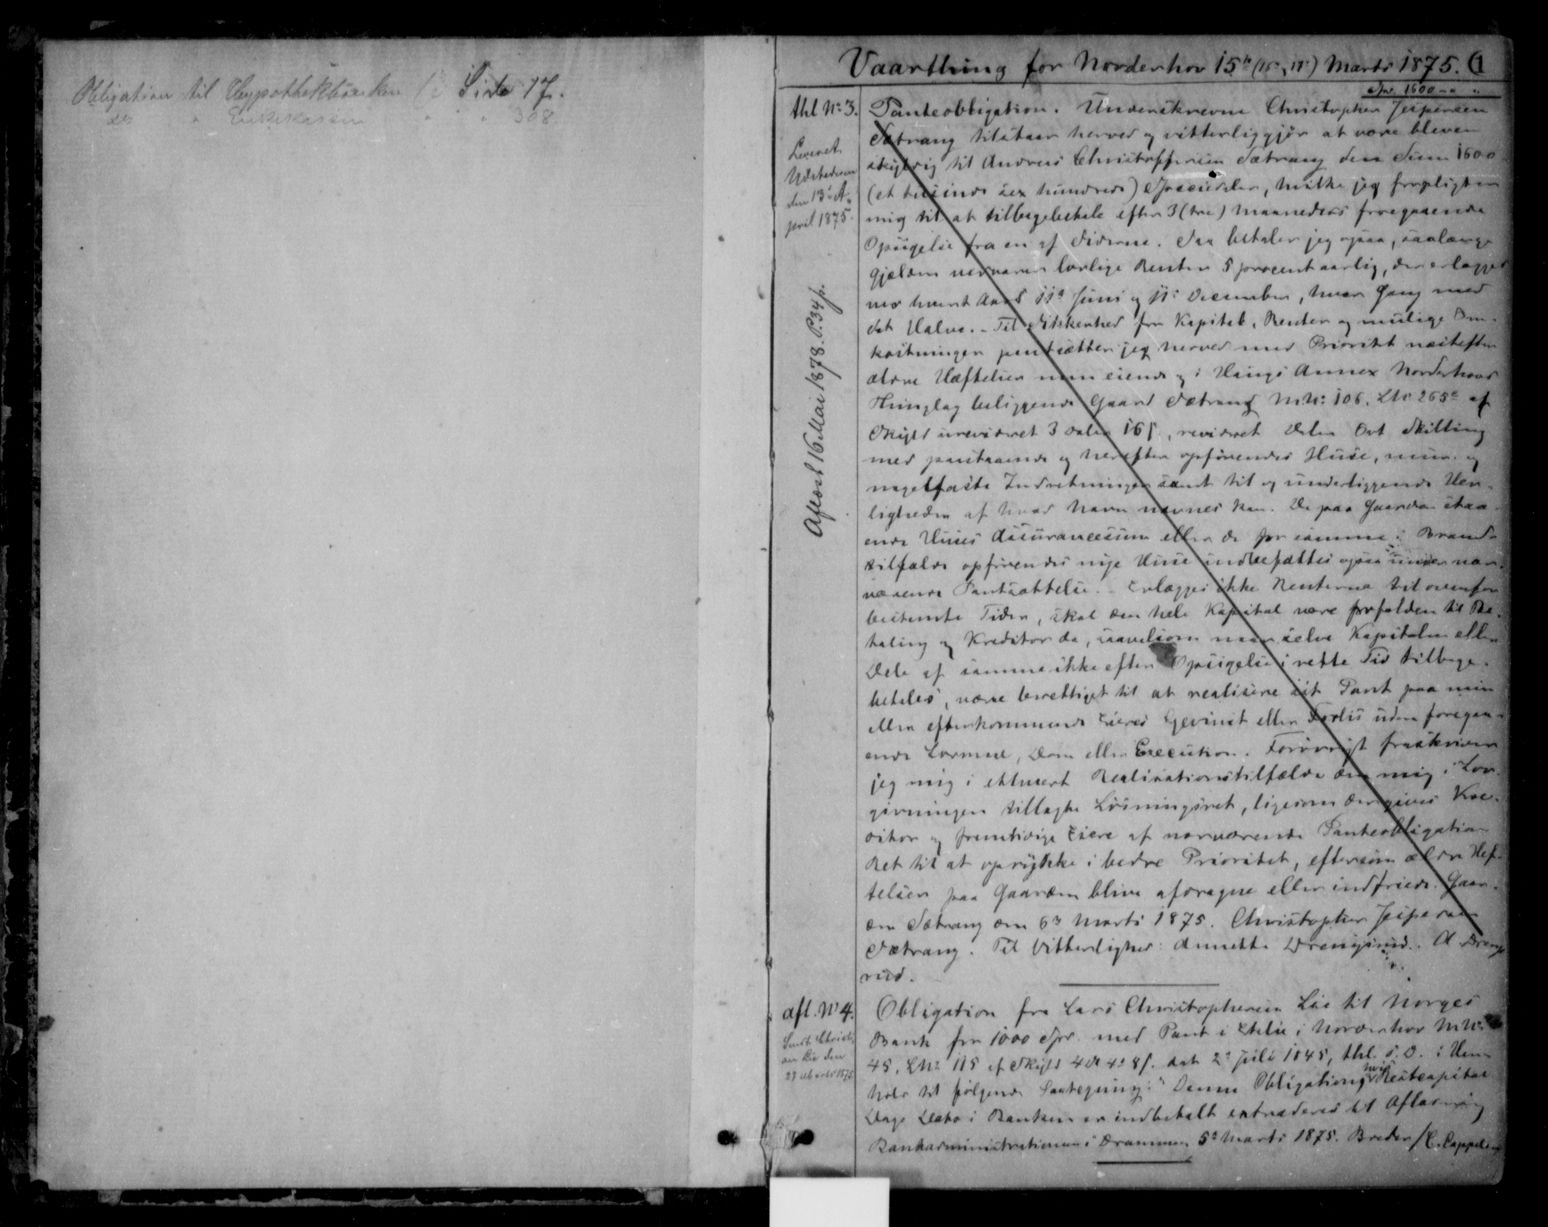 Obligation til Hypothekbanken Side 17.
do " Enkekassen " " 308
Vaarthing for Norderhov 15de (15, 18) Marts 1875. 1
Spd. 1600 " "
thl No 3. Panteobligation. Underskrevne Christopher Jespersen
Sætrang tilstaar herved og vitterliggjør at være bleven
skyldig til Andreas Christoffersen Sætrang den Sum 1600
(et tusinde sex hundrede) Speciedaler, hvilke jeg forpligter
mig til at tilbagebetale efter 3 (tre) Maaneders foregaaende
Opsigelse fra en af Siderne. Saa betaler jeg ogsaa, saalænge
Gjælden vedvarer lovlige Renter 5 procent aarlig, der erlægges
ved hvert Aars 11te Juni og 11te December, hver Gang med
det Halve. - Til Sikkerhed for Kapital, Renter og mulige Om-
kostninger pantsætter jeg herved med Prioritet næstefter
ældre Hæftelser min eiende og i Haugs Annex Norderhovs
Thinglag beliggende Gaard Sætrang M No 106. L No 265a af
Skyld urevideret 3 Daler 16 s, revideret Daler Ort Skilling
med paastaaende og herefter opførendes Huse, mur- og
nagelfaste Indretninger samt til og underliggende Her-
ligheder af hvad Navn nævnes kan. De paa Gaarden staa-
ende Huses Assurancesum eller de for samme i Brand-
tilfælde opførendes nye Huse indbefattes ogsaa under nær-
værende Pantsættelse. - Erlægges ikke Renterne til ovenfor
bestemte Tider, skal den hele Kapital være forfalden til Be-
taling og Kreditor da, saavelsom naar selve Kapitalen eller
Dele af samme ikke efter Opsigelse i rette Tid tilbage-
betales, være berettiget til at realisere sit Pant paa min
eller efterkommende Eieres Gevinst eller Forlis uden foregaa-
ende Lovmaal, Dom eller Execution. Forøvrigt fraskriver
jeg mig i ethvert Realisationstilfælde den mig i Lov-
givningen tillagte Løsningsret, ligesom der gives Kre-
ditor og fremtidige Eiere af nærværende Panteobligation
Ret til at oprykke i bedre Prioritet, eftersom ældre Hef-
telser paa Gaarden blive afdragne eller indfriede. Gaar-
den Sætrang den 6te Marts 1875. Christopher Jespersen
Sætrang. Til Vitterlighed: Annette Drengsrud. A Drengs
rud.
Leveret
Udstederen
den 13de A-
pril 1875.
Aflæst 16 Mai 1878. P. 34 p.
afl. No 4. Obligation fra Lars Christophersen Lie til Norges
Bank for 1000 Spd. med Pant i Stelie i Norderhov M No
45, L No 115 af Skyld 4 D 4 o 8 s. dat 2de Juli 1845, thl. s. D. i Hen-
hold til følgende Paategning: "Denne Obligation, hvis Restcapital
Dags Dato i Banken er indbetalt extraderes til Aflæsning
Bankadministrationen i Drammen 5te Marts 1875. Breder / C. Cappelen
Sendt Christi
an Lie den
27 Marts 1875